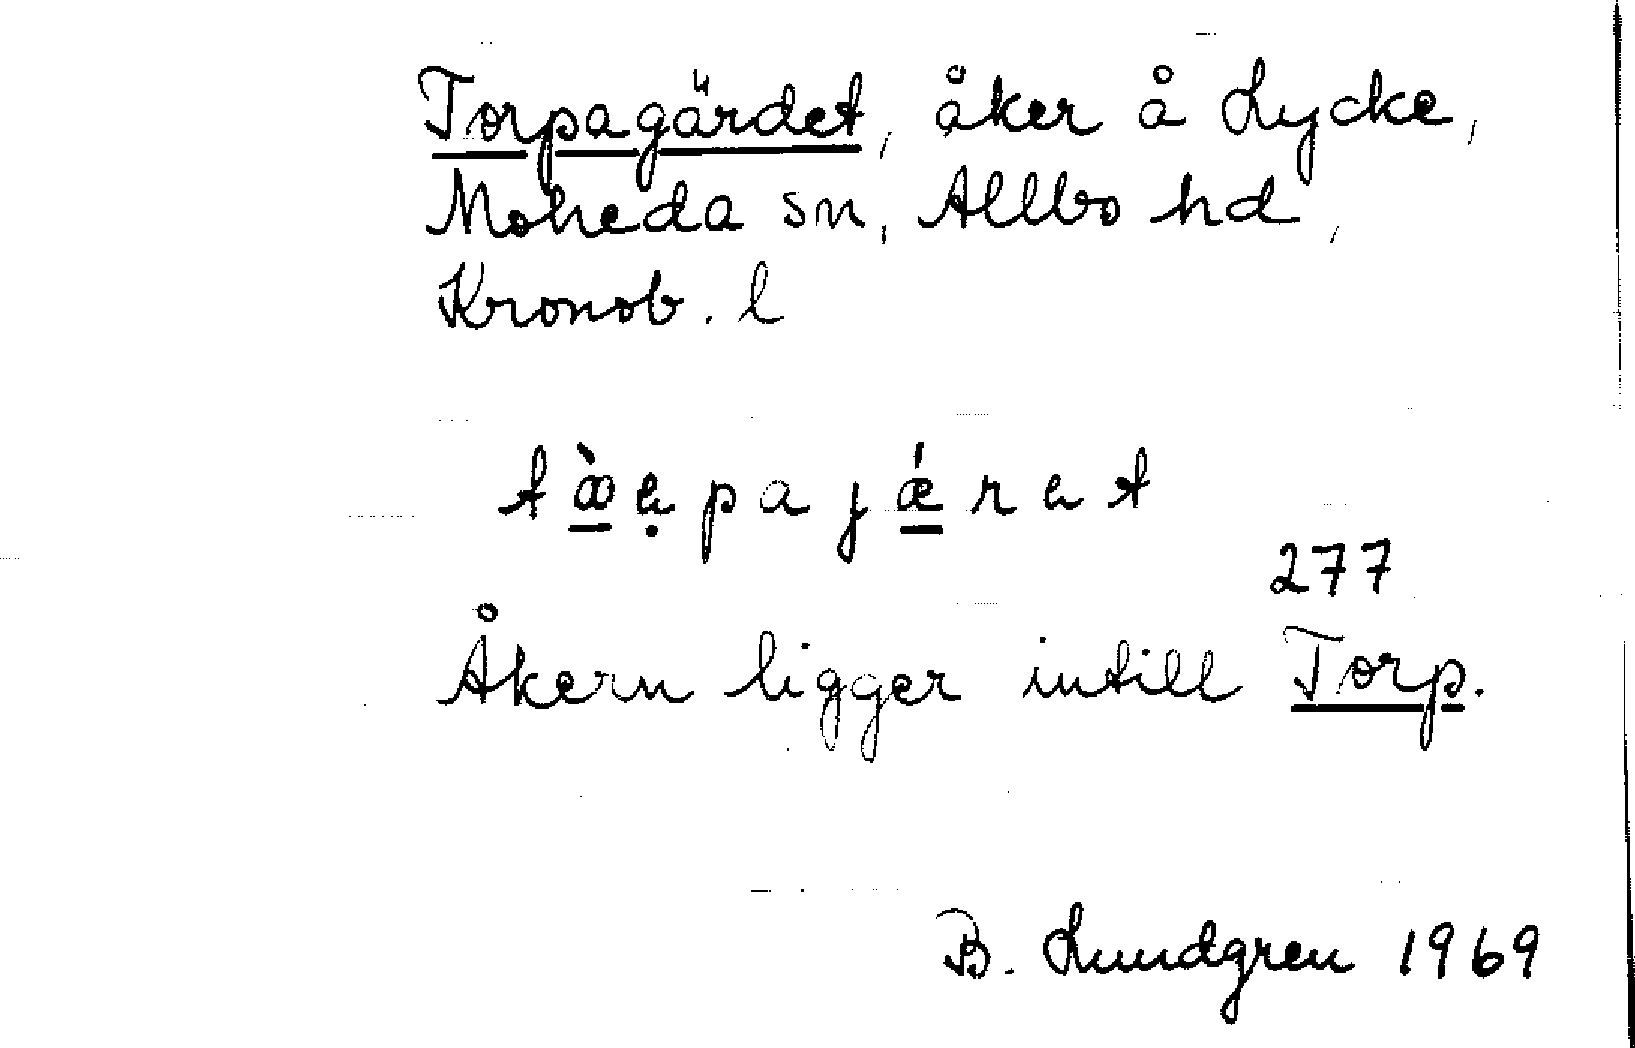 Torpagärdet, åker å Lycke,
Moheda sn, Allbo hd,
Kronob. l
277
Åkern ligger intill Torp.
B. Lundgren 1969